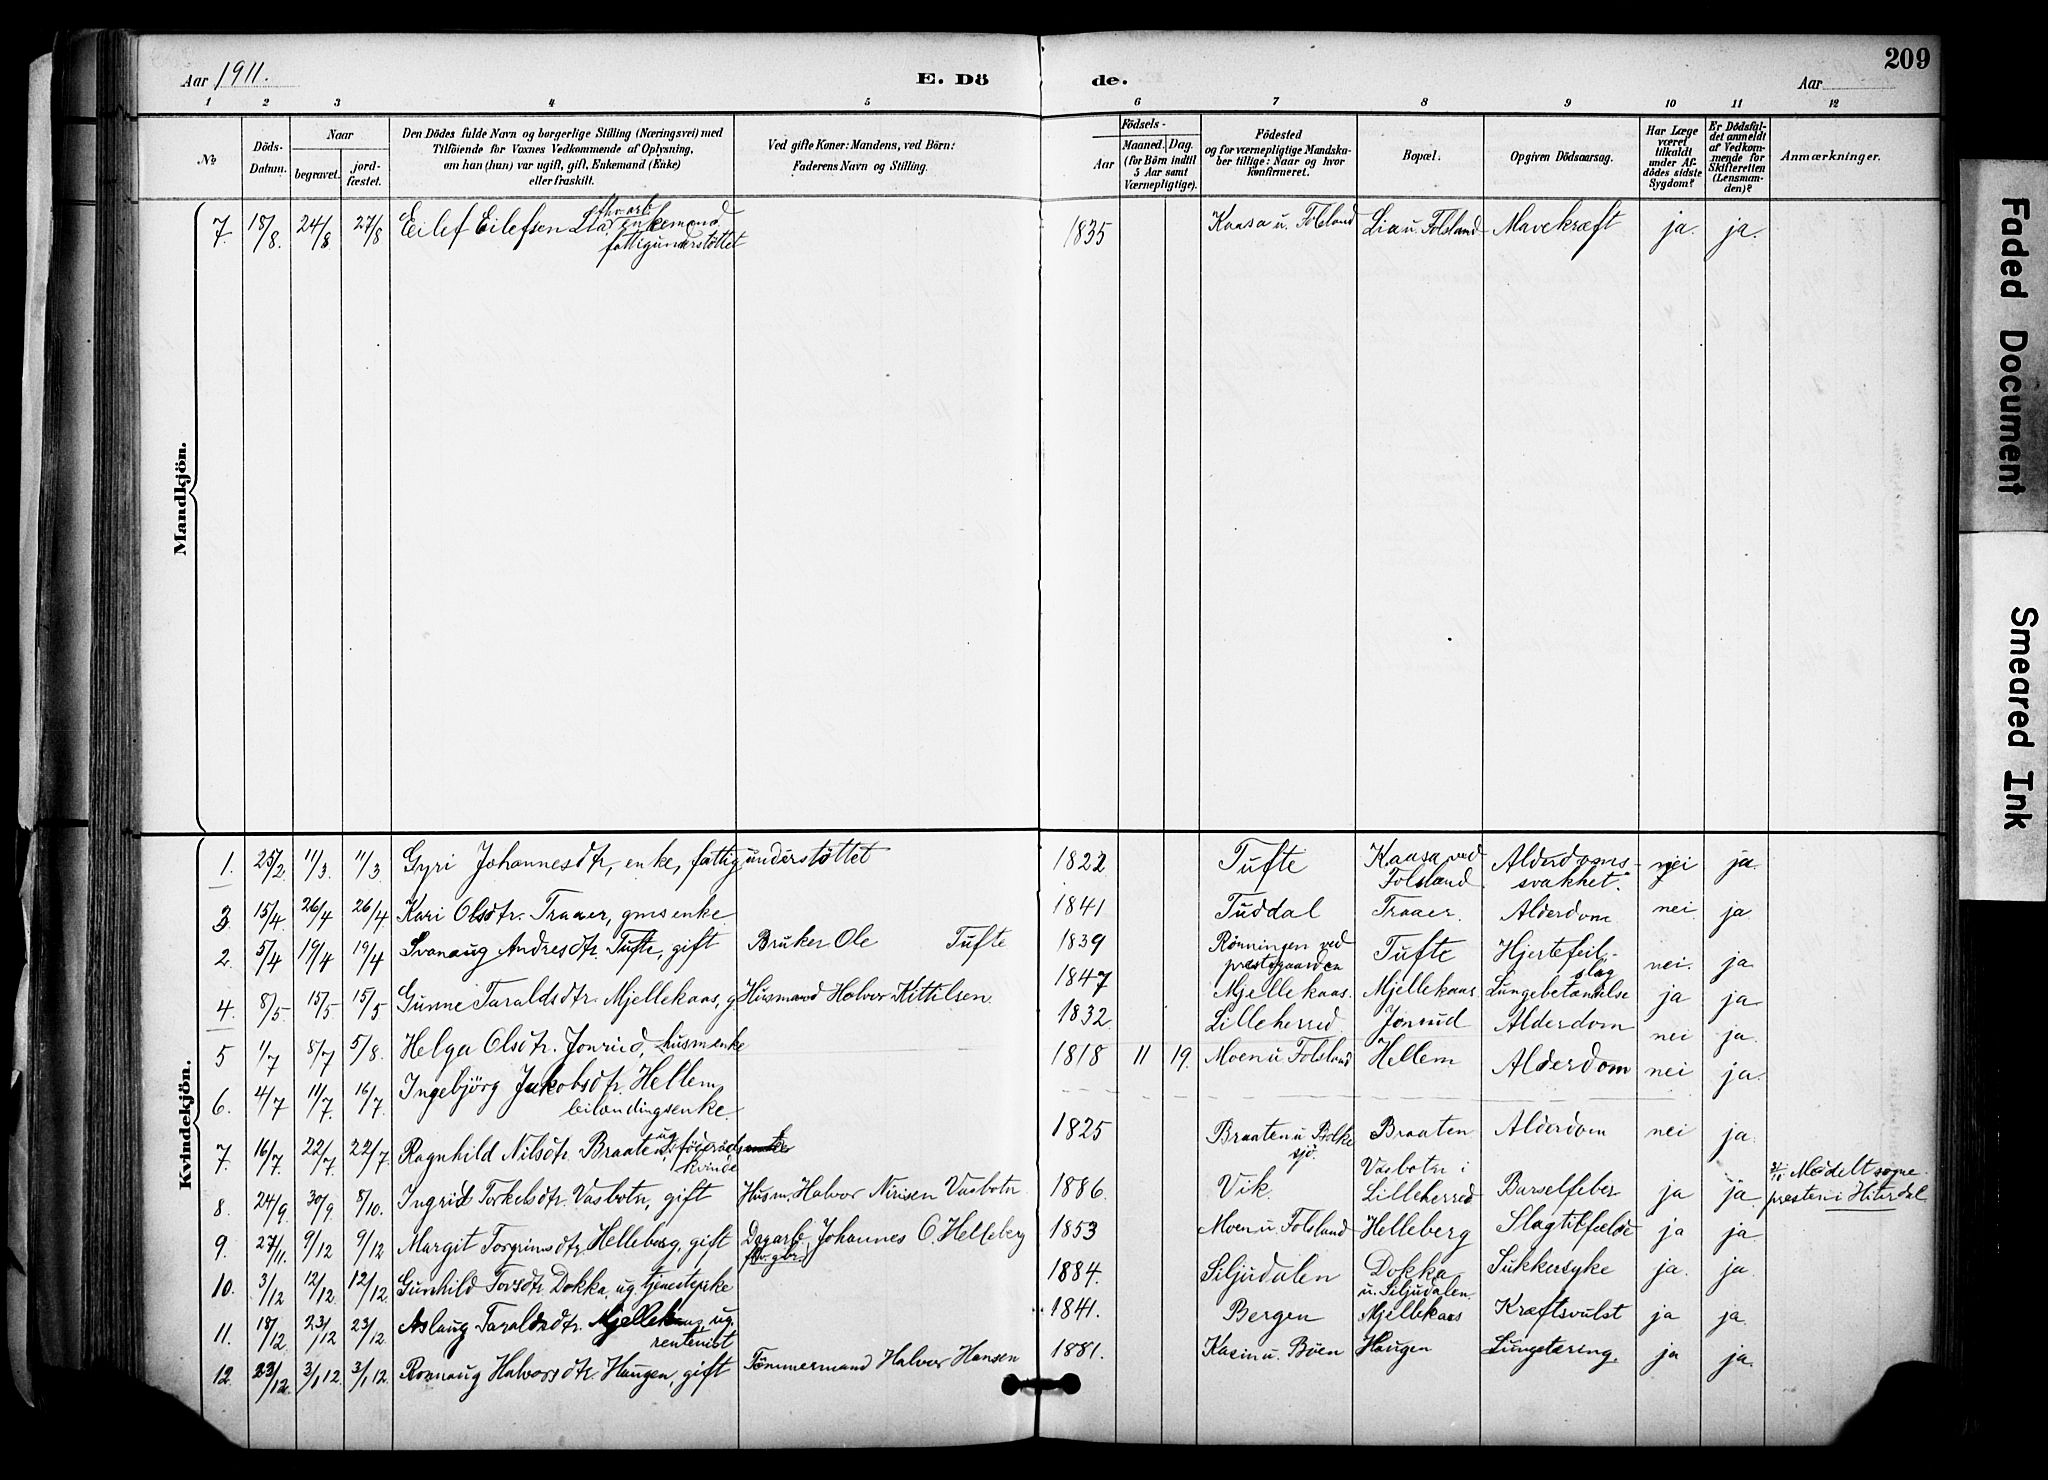 209
Aar 1911.
E. Dö de.
Aar
1 2 3 4 5 6 7 8 9 10 11 12
No
Döds-Datum.
Naar
begravet.
jord-fæstet.
Den Dödes fulde Navn og borgerlige Stilling (Næringsvei) med
Tilföiende for Voxnes Vedkommende af Oplysning,
om han (hun) var ugift, gift, Enkemand (Enke)
eller fraskilt.
Ved gifte Koner: Mandens, ved Börn:
Faderens Navn og Stilling.
Födsels-
Aar
Maaned. Dag.
(for Börn indtil
5 Aar samt
Værnepligtige).
Födested
og for værnepligtige Mandska-
ber tillige: Naar og hvor
konfirmeret.
Bopæl.
Opgiven Dödsaarsag.
Har Læge
været
tilkaldt
under Af-
dödes sidste
Sygdom?
Er Dödsfal-
det anmeldt
af Vedkom-
mende for
Skifteretten
(Lensman-
den)?
Anmærkninger.
Mandkjön.
7. 18/8. 24/8 27/8 Eilef Eilefsen Lia, fhv. arb. enkemand, fattigunderstøttet 1835 Kaasa u. Folsland Lia u. Folsland Mavekræft ja. ja.
Kvindekjön.
1. 25/2. 11/3. 11/3 Gyri Johannesdtr, enke, fattigunderstøttet 1822 Tufte Kaasa ved Folsland Alderdoms-svakhet. nei ja.
3 15/4 26/4 26/4 Kari Olsdtr. Traaer, gmsenke 1841 Tuddal Traaer. Alderdom nei ja
2. 5/4 19/4 19/4 Svanaug Andresdtr. Tufte, gift Bruker Ole Tufte 1839 Rønningen ved præstegaarden Tufte Hjertefeil - slag nei. ja
4. 8/5 15/5 15/5 Gunne Taraldsdtr. Mjellekaas, g. Husmand Halvor Kittilsen. 1847 Mjellekaas. Mjellekaas Lungebetændelse ja ja
5 1/7 8/7 5/8. Helga Olsdtr. Jonrud, husmenke 1832 Lilleherred Jonrud Alderdom nei ja.
6. 4/7 11/7. 16/7. Ingebjörg Jakobsdtr. Hellem, bilandingsenke. 1818 11 19. Moen u. Folsland Hellem Alderdom nei ja.
7. 16/7. 22/7. 22/7. Ragnhild Nilsdtr. Braaten, ug. föderåds kvinde 1825 Braaten u Bolkesjö. Braaten Alderdom nei ja.
8. 24/9 30/9 8/10. Ingrid Torkelsdtr. Vasbotn, gift Husm. Halvor Nirisen Vasbotn 1886. Vik. Vasbotn i Lilleherred Barselfeber ja ja Meddelt sogne-presten i Hiterdal.
9. 27/11. 9/12 9/12 Margit Torgrimsdtr. Helleberg, gift Dagarb. Johannes O. Helleberg 1853 Moen u. Folsland Helleberg Slagtilfælde ja ja.
10. 3/12 12/12. 12/12. Gunhild Torsdtr. Dokka, ug. tjenestepike 1884. Siljudalen Dokka u. Siljudalen. Sukkersyke ja. ja
11. 18/12 23/12 23/12. Aslaug Taraldsdtr. Mjellekaas, ug. rentenist 1841. Bergen Mjellekaas Kræftsvulst ja ja.
12. 23/12. 3/1 12. 3/1 12. Ronnaug Halvorsdtr. Haugen, gift Tömmermand Halvor Hansen 1881. Kasin u. Böen Haugen Lungetæring. ja ja.
Faded Document
Smeared Ink